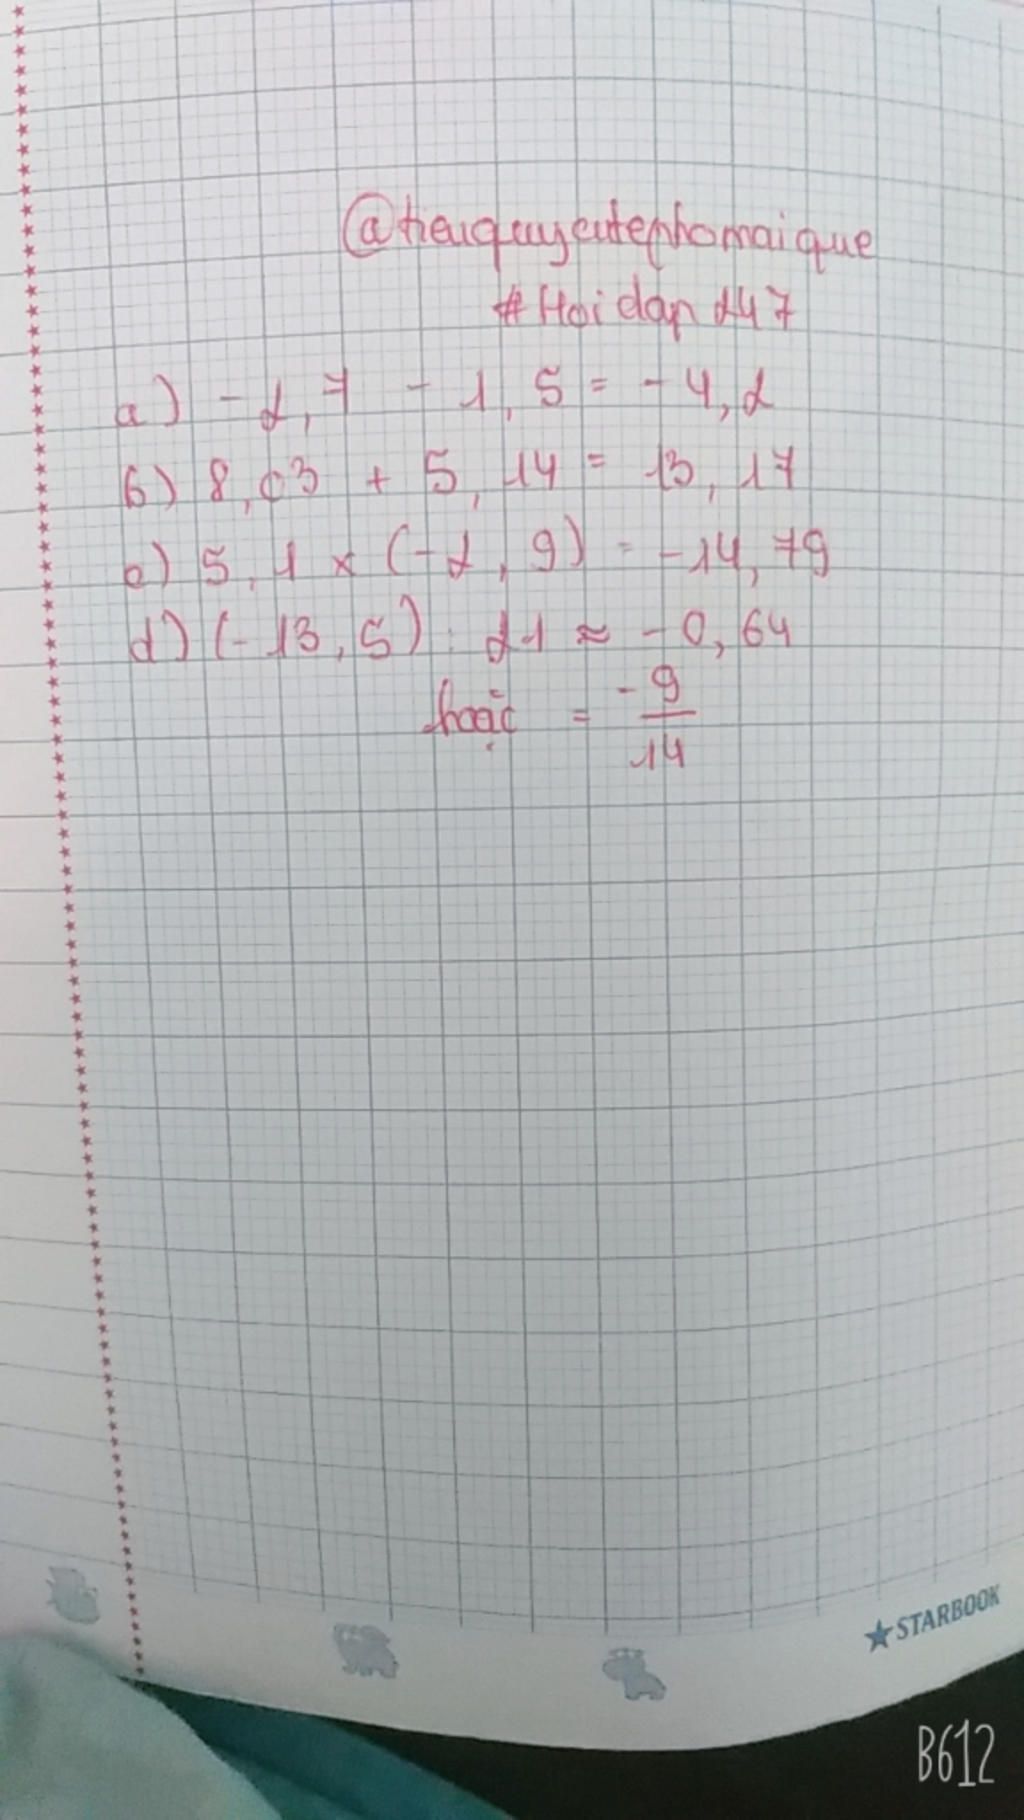 @tieuquycutephomaique
#Hoidap247
a) -2,7 - 1,5 = -4,2
b) 8,03 + 5,14 = 13,17
c) 5,1 x (-2,9) = -14,79
d) (-13,5) : 21 ≈ -0,64
hoặc = -9/14
★STARBOOK
B612